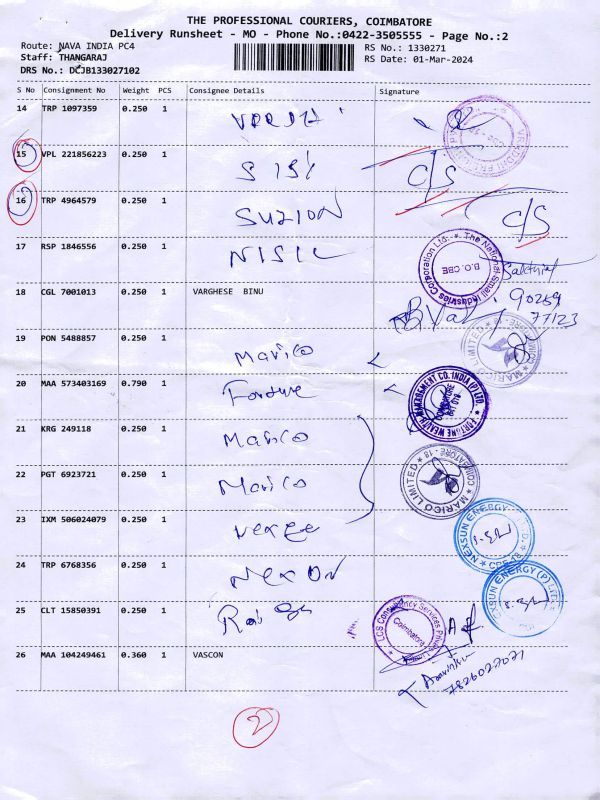 THE PROFESSIONAL COURIERS, COIMBATORE
Delivery Runsheet - MO - Phone No.:0422-3505555 - Page No.:2
Route: NAVA INDIA PC4 RS No.: 1330271
Staff: THANGARAJ RS Date: 01-Mar-2024
DRS No.: DCJB133027102
S No Consignment No Weight PCS Consignee Details Signature
14 TRP 1097359 0.250 1
15 VPL 221856223 0.250 1 C/S
16 TRP 4964579 0.250 1 SUZION C/S
17 RSP 1846556 0.250 1 NISIC
The National Small Industries Corporation Ltd. B.O.CBE
18 CGL 7001013 0.250 1 VARGHESE BINU 90259
77123
19 PON 5488857 0.250 1 Marico
MARICO LIMITED - 18 COIMBATORE
20 MAA 573403169 0.790 1 Fortune
FORTUNE WEALTH MANAGEMENT CO. INDIA (P) LTD.
21 KRG 249118 0.250 1 Marico
22 PGT 6923721 0.250 1 Marico
MARICO LIMITED - 18 COIMBATORE
23 IXM 506024079 0.250 1
NEXSUN ENERGY (P) LTD. CBE-18
24 TRP 6768356 0.250 1 NEXON
NEXSUN ENERGY (P) LTD.
25 CLT 15850391 0.250 1
LCS Consultancy Services Private Limited Coimbatore
26 MAA 104249461 0.360 1 VASCON
7826027021
2